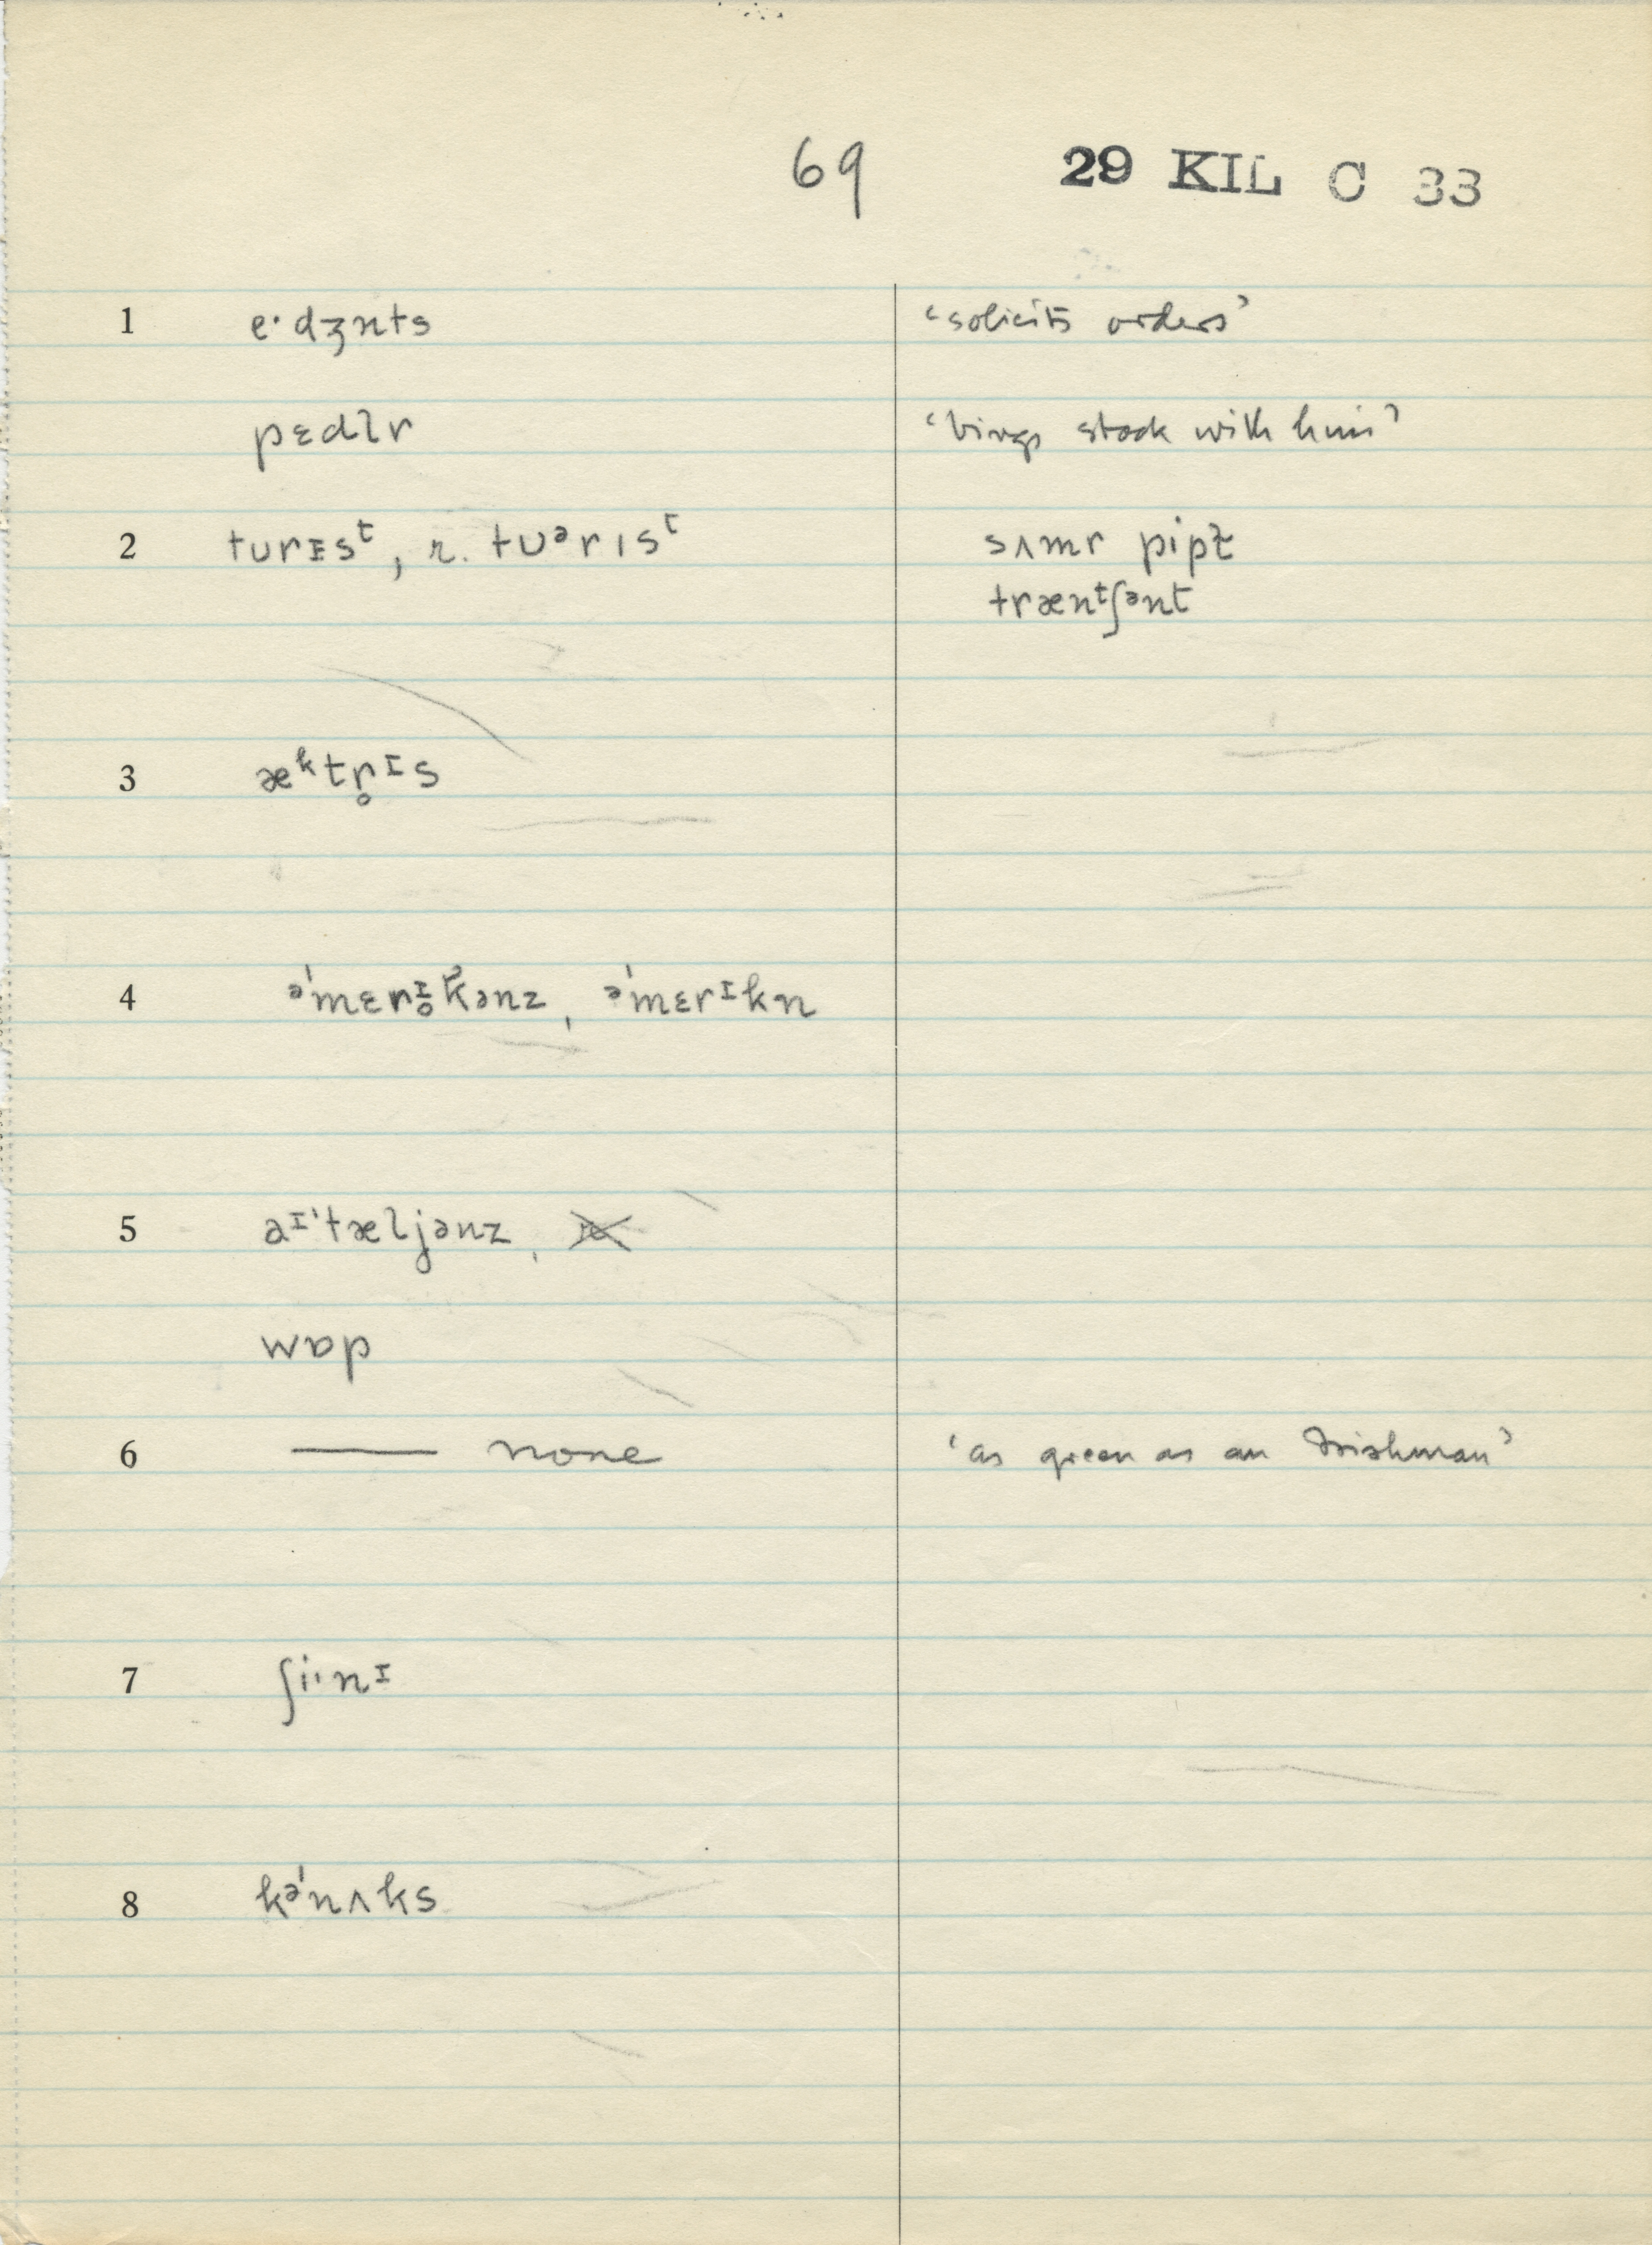 69 29 KIL C 33
1 eˑdʒnts ‘solicits orders’
pɛdlr ‘brings stock with him’
2 turɪsᵗ, r. tuᵊrɪsᵗ sʌmr pipɫ
trænᵗʃənt
3 æᵏtr̥ᶦs
4 əˈmɛrᶦ̥k̆ənz, əˈmɛrᶦkn
5 aᶦˈtæljənz,
wɒp
6 —— none ‘as green as an Irishman’
7 ʃiˑnᶦ
8 kəˈnʌks